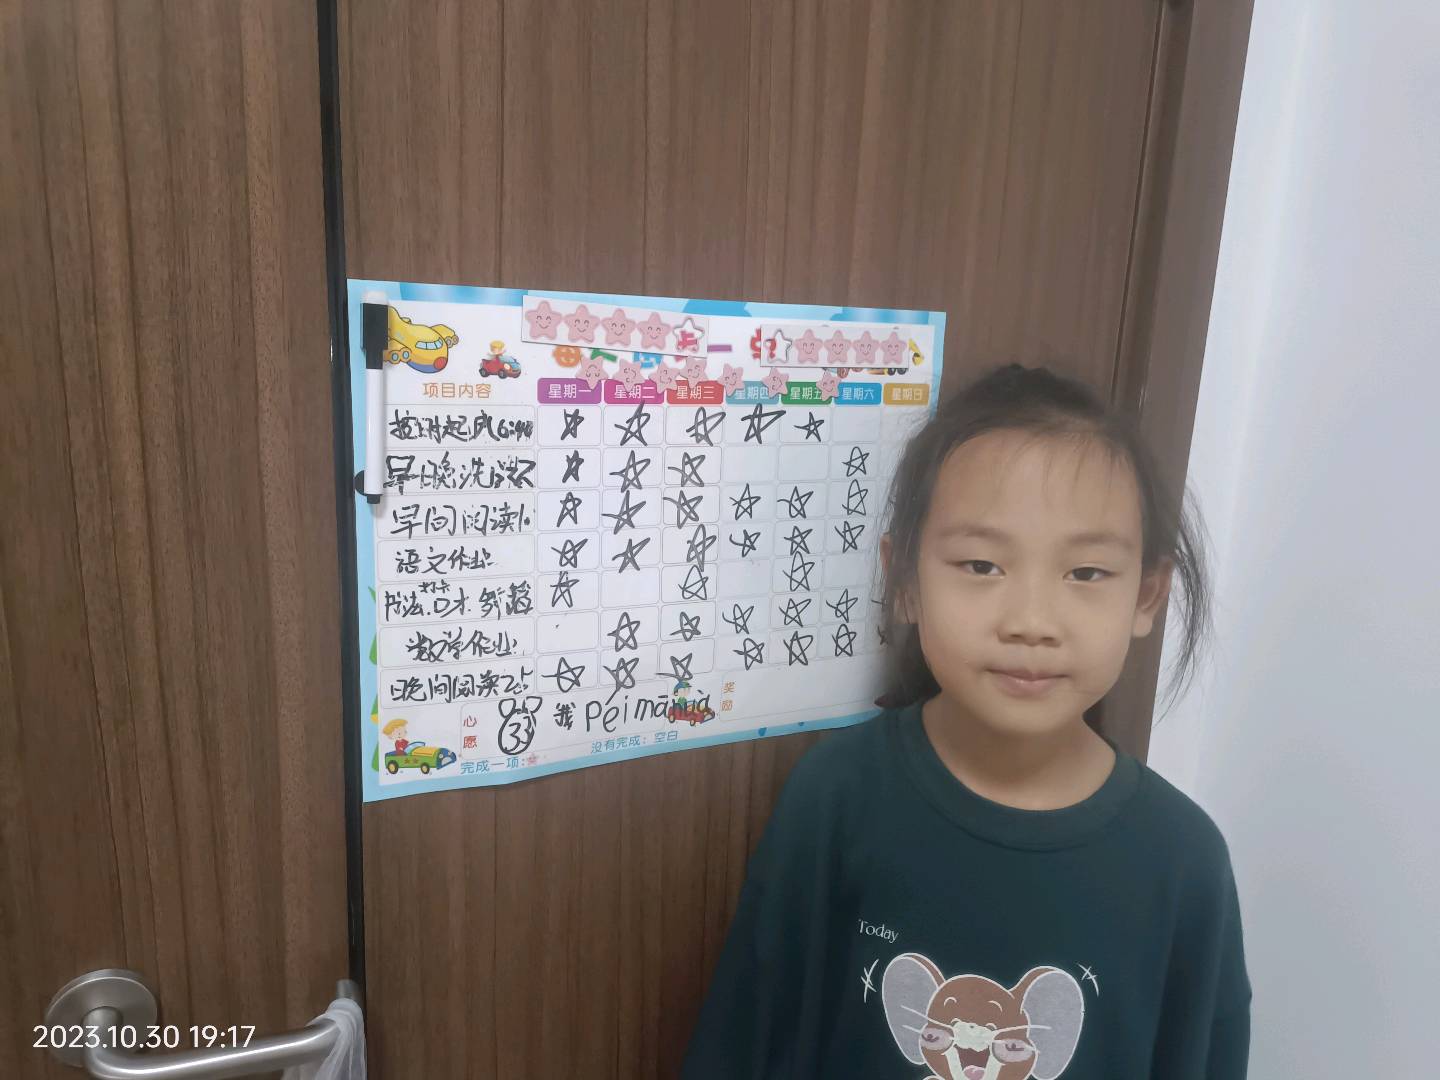 项目内容 星期一 星期二 星期三 星期四 星期五 星期六 星期日
按时起床6:40
早晚洗漱
早间阅读
语文作业
书法 口才 舞蹈
打卡
数学作业
晚间阅读
心愿 33 我 Péi mā
奖励
完成一项: 没有完成: 空白
Today
2023.10.30 19:17